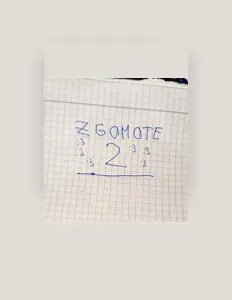 ZGOMOTE
:3 2 :3 :3
:3
:3 :3